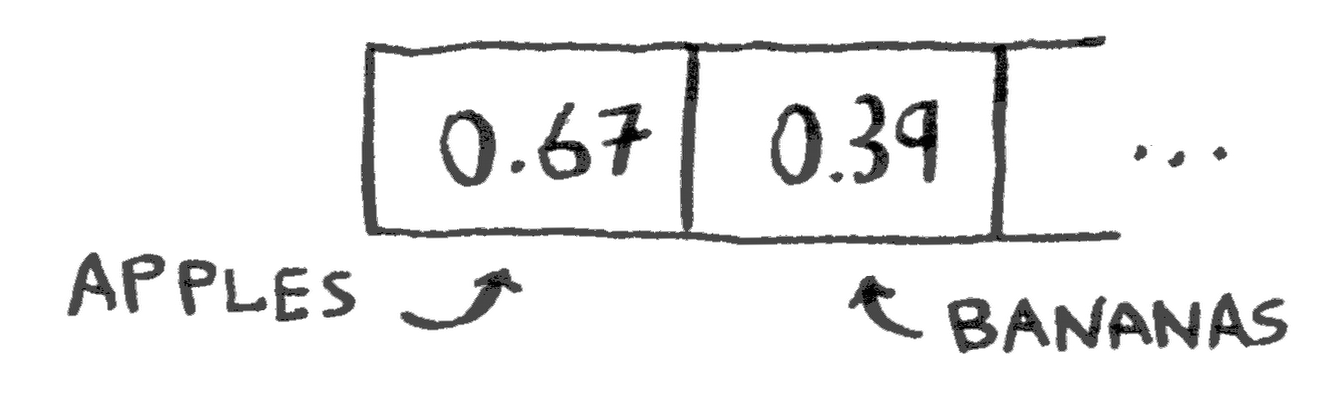 0.67 0.39 ...
APPLES BANANAS